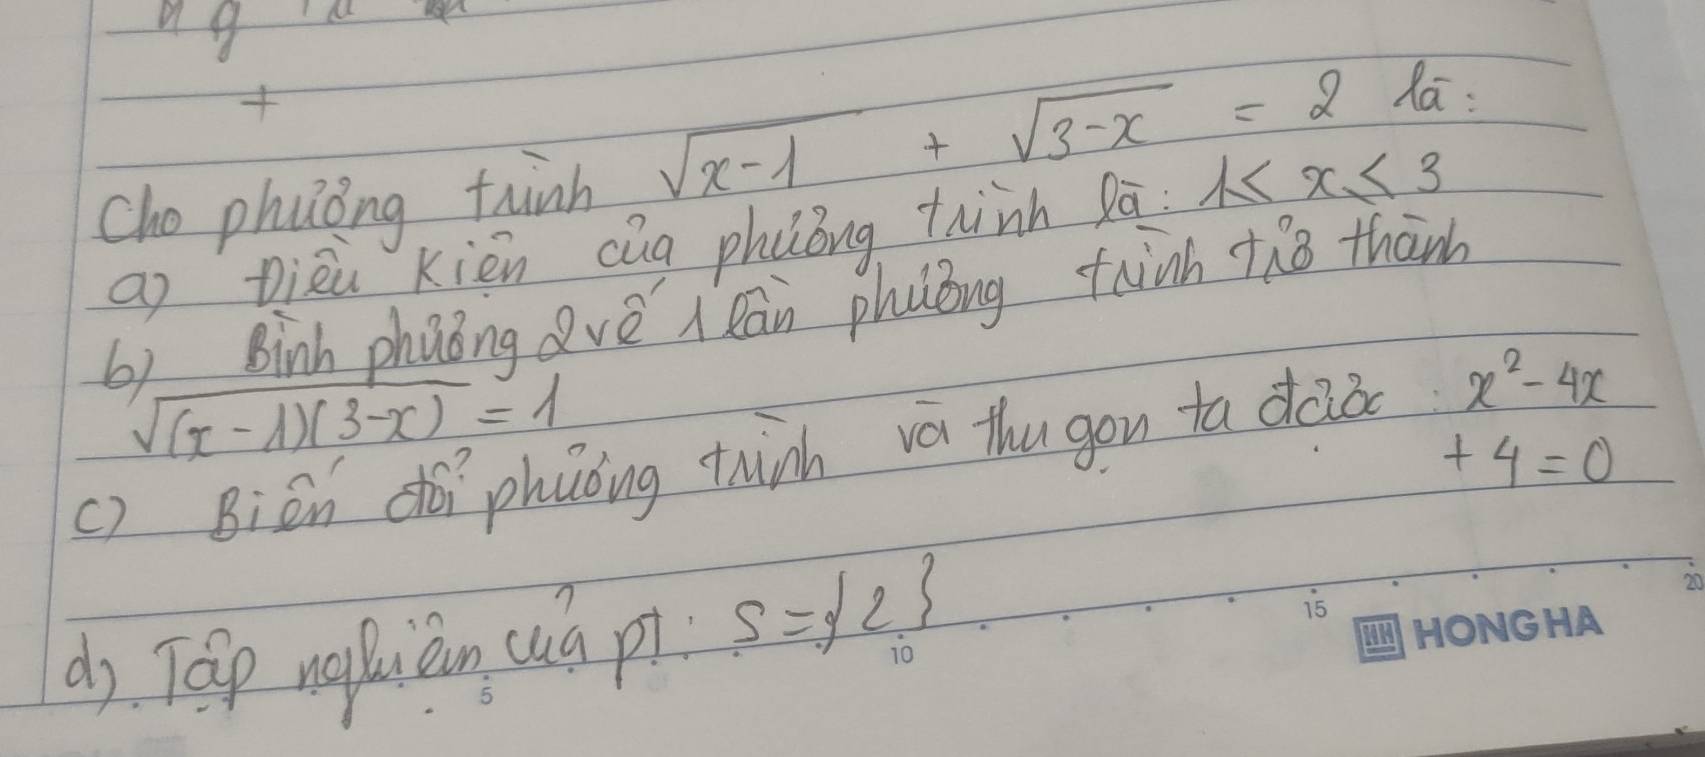 +
Cho phương trình √(x-1) + √(3-x) = 2 là:
a) Điều kiện của phương trình là: 1 < x < 3
b) Bình phương 2 vế 1 lần phương trình trở thành
√((x-1)(3-x)) = 1
c) Biến đổi phương trình và thu gọn ta được: x² - 4x
+ 4 = 0
d) Tập nghiệm của pt: S = {2}
5 10 15 20
HH HONG HA